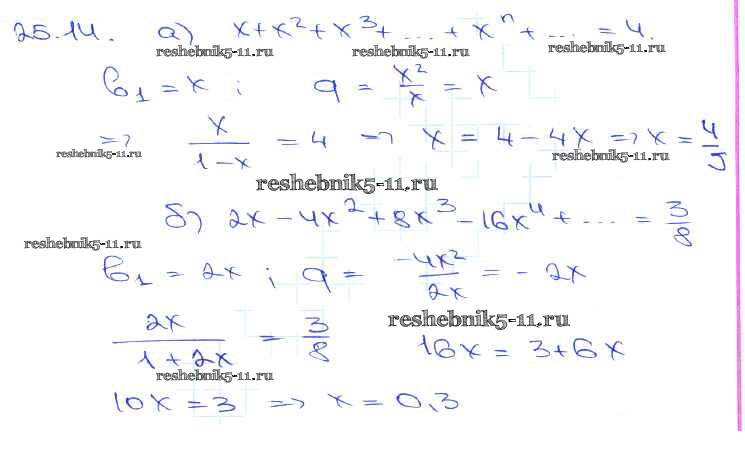 25.14. а) x + x² + x³ + ... + xⁿ + ... = 4.
reshebnik5-11.ru reshebnik5-11.ru reshebnik5-11.ru
b₁ = x ; q = x²/x = x
=> x/(1-x) = 4 => x = 4 - 4x => x = 4/5
reshebnik5-11.ru reshebnik5-11.ru
reshebnik5-11.ru
б) 2x - 4x² + 8x³ - 16x⁴ + ... = 3/8
reshebnik5-11.ru
b₁ = 2x ; q = -4x²/2x = - 2x
reshebnik5-11.ru
2x/(1+2x) = 3/8 16x = 3 + 6x
reshebnik5-11.ru
10x = 3 => x = 0,3